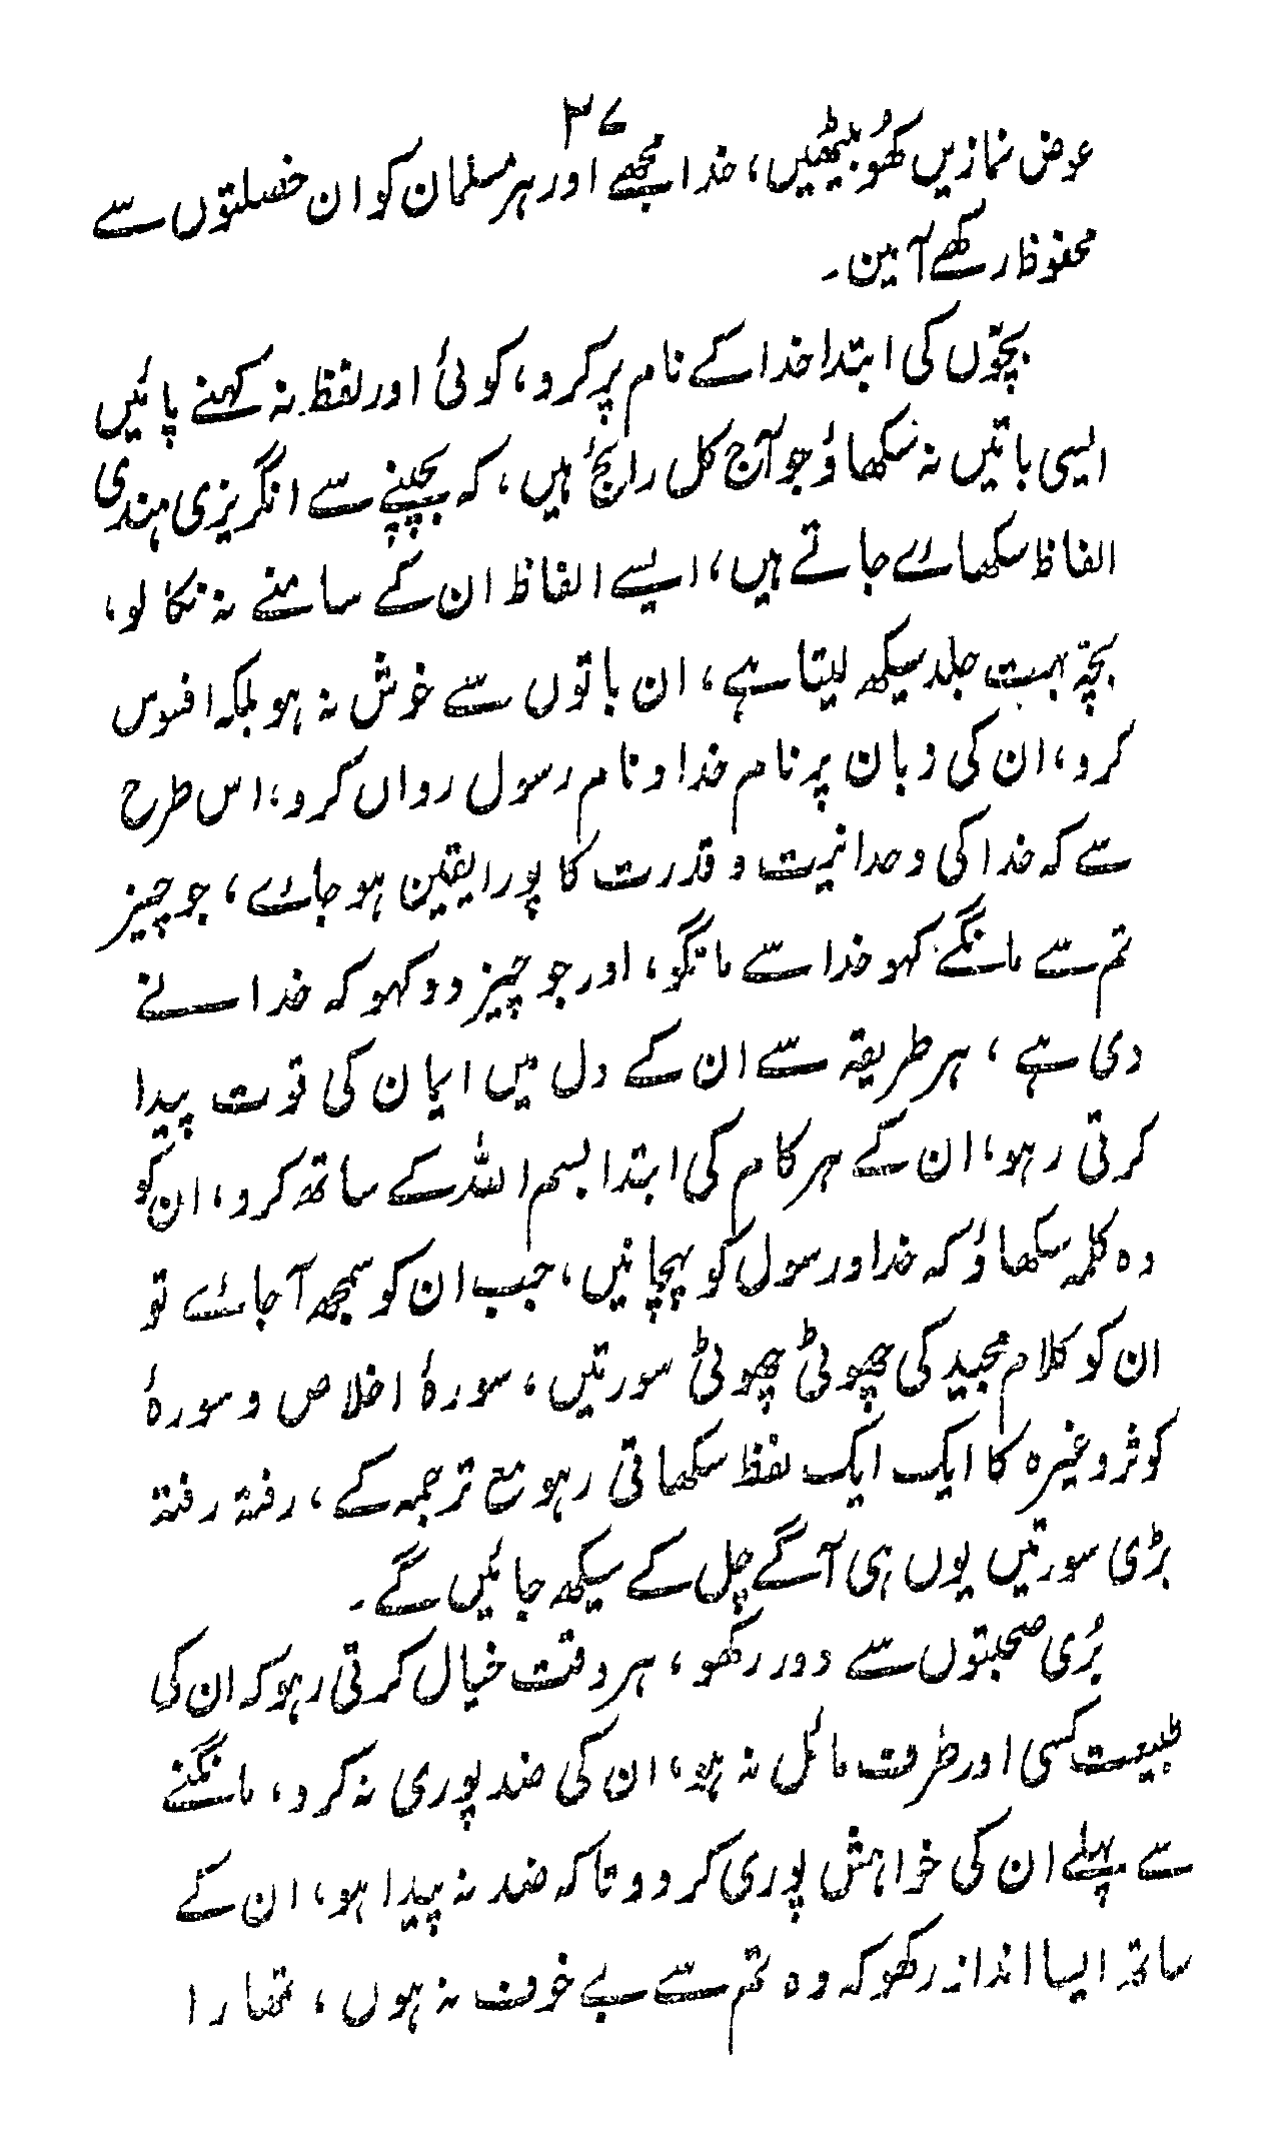 ۳۷
عوض نمازیں کھُو بیٹھیں، خدا مجھے اور ہر مسلمان کو ان خصلتوں سے
محفوظ رکھے آمین۔
بچّوں کی ابتدا خدا کے نام پر کرو، کوئی اور لفظ نہ کہنے پائیں
ایسی باتیں نہ سکھاؤ جو آج کل رائج ہیں، کہ بچپنے سے انگریزی ہندی
الفاظ سکھائے جاتے ہیں، ایسے الفاظ ان کے سامنے نہ نکالو،
بچّہ بہت جلد سیکھ لیتا ہے، ان باتوں سے خوش نہ ہو بلکہ افسوس
کرو، ان کی زبان پر نام خدا و نام رسول رواں کرو، اس طرح
سے کہ خدا کی وحدانیت و قدرت کا پورا یقین ہو جائے، جو چیز
تم سے مانگے کہو خدا سے مانگو، اور جو چیز دو کہو کہ خدا نے
دی ہے، ہر طریقہ سے ان کے دل میں ایمان کی قوت پیدا
کرتی رہو، ان کے ہر کام کی ابتدا بسم اللہ کے ساتھ کرو، ان کو
وہ کلمہ سکھاؤ کہ خدا ورسول کو پہچانیں، جب ان کو سمجھ آجائے تو
ان کو کلام مجید کی چھوٹی چھوٹی سورتیں، سورۂ اخلاص و سورۂ
کوثر وغیرہ کا ایک ایک لفظ سکھاتی رہو مع ترجمہ کے، رفتہ رفتہ
بڑی سورتیں یوں ہی آگے چل کے سیکھ جائیں گے۔
بُری صحبتوں سے دور رکھو، ہر وقت خیال کرتی رہو کہ ان کی
طبیعت کسی اور طرف مائل نہ ہو، ان کی ضد پوری نہ کرو، مانگنے
سے پہلے ان کی خواہش پوری کر دو تاکہ ضد نہ پیدا ہو، ان کے
ساتھ ایسا انداز رکھو کہ وہ تم سے بے خوف نہ ہوں، تمھارا